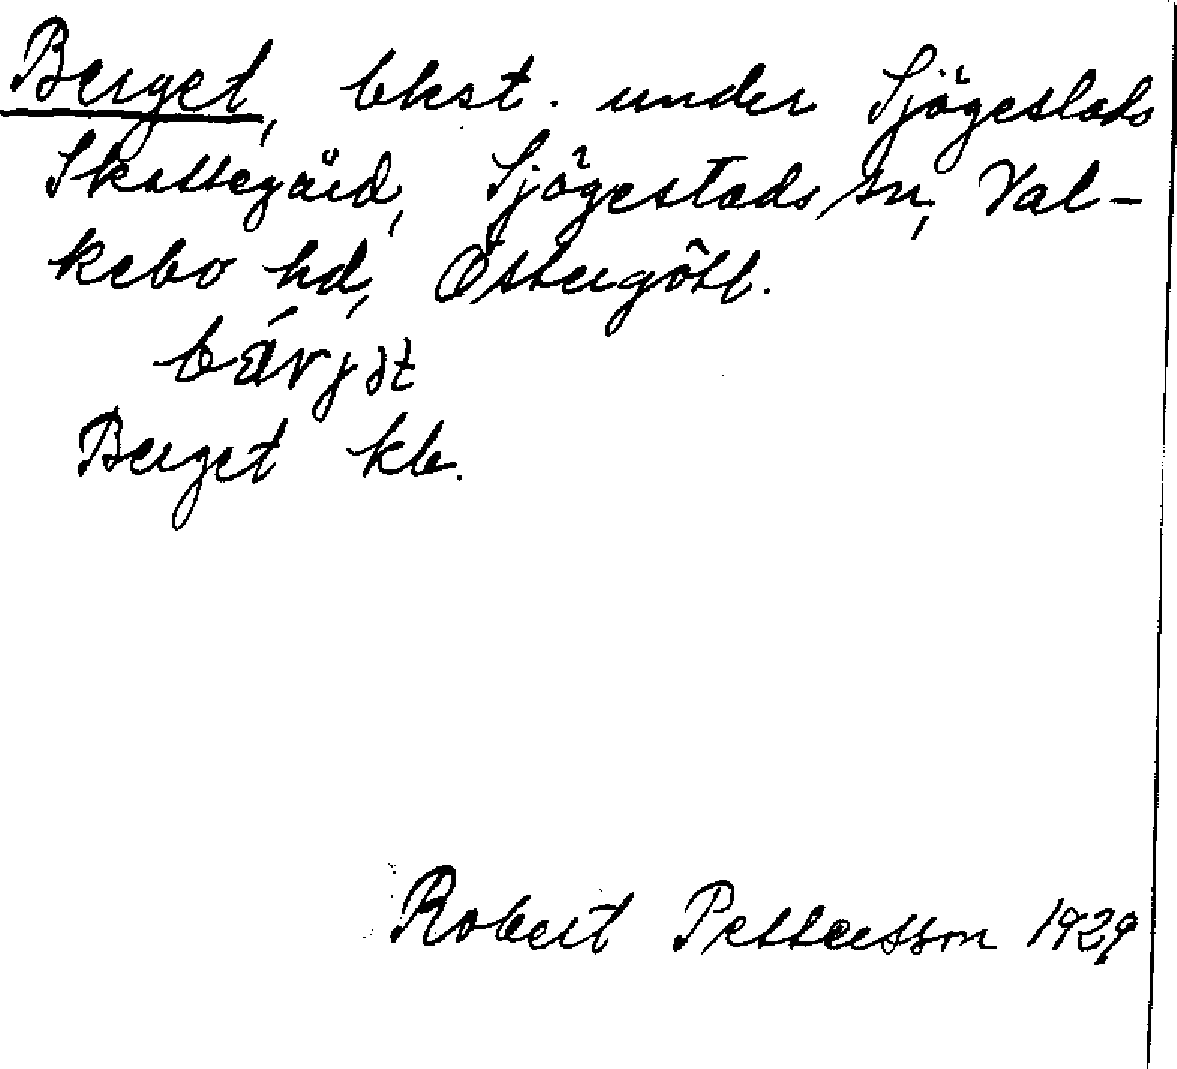 Berget, bkst. under Sjögestads
Skattegård, Sjögestads sn, Val-
kebo hd, Östergötl.
Berget kb.
Robert Pettersson 1929